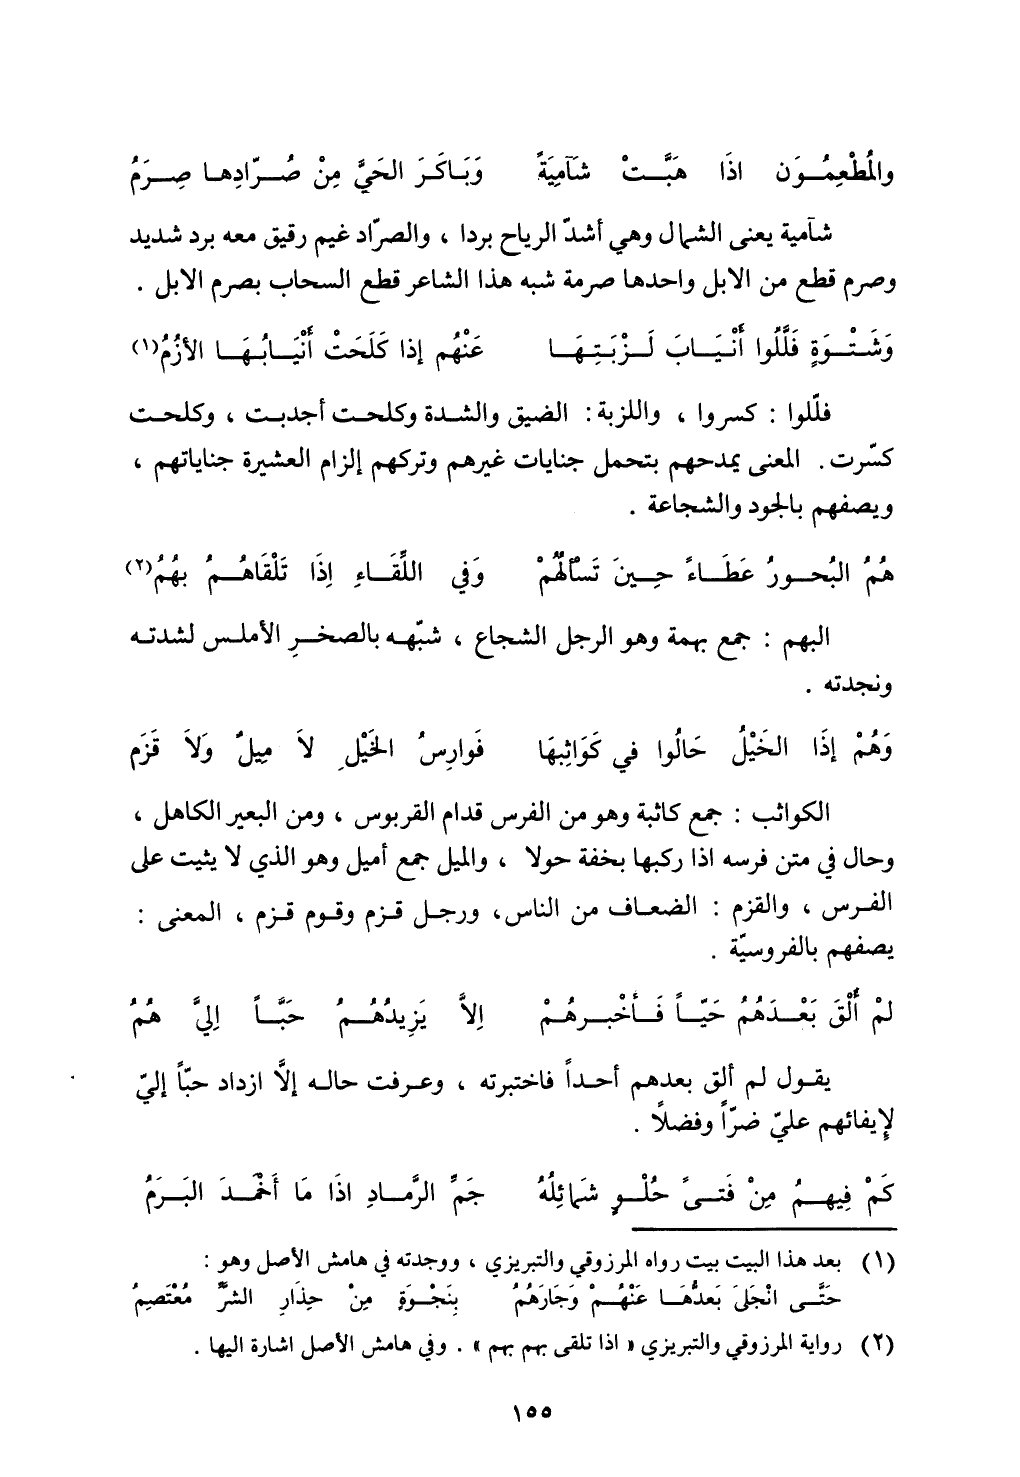 والمُطْعِمُون اذَا هَبَّتْ شآمِيَةً وَبَاكَرَ الحَيَّ مِنْ صُرّادِها صِرَمُ
شآمية يعنى الشمال وهي أشدّ الرياح بردا ، والصرّاد غيم رقيق معه برد شديد
وصرم قطع من الابل واحدها صرمة شبه هذا الشاعر قطع السحاب بصرم الابل .
وَشَتْوَةٍ فَلَّلُوا أَنْيَابَ لَزْبَتِهَا عَنْهُم إذا كَلَحَتْ أَنْيَابُهَا الأزُمُ(١)
فلّلوا : كسروا ، واللزبة : الضيق والشدة وكلحت أجدبت ، وكلحت
كسّرت . المعنى يمدحهم بتحمل جنايات غيرهم وتركهم إلزام العشيرة جناياتهم ،
ويصفهم بالجود والشجاعة .
هُمُ البُحورُ عَطَاءً حِينَ تَسْأَلُهُمْ وَفي اللِّقَاءِ اِذَا تَلْقَاهُمُ بهُمُ(٢)
البهم : جمع بهمة وهو الرجل الشجاع ، شبّهه بالصخرِ الأملس لشدته
ونجدته .
وَهُمْ إذَا الخَيْلُ حَالُوا في كَوَاثِبهَا فَوارِسُ الخَيْلِ لاَ مِيلٌ وَلاَ قَزَم
الكواثب : جمع كاثبة وهو من الفرس قدام القربوس ، ومن البعير الكاهل ،
وحال في متن فرسه اذا ركبها بخفة حولا ، والميل جمع أميل وهو الذي لا يثيت على
الفرس ، والقزم : الضعاف من الناس، ورجل قزم وقوم قزم ، المعنى :
يصفهم بالفروسيّة .
لمْ أَلْقَ بَعْدَهُمُ حَيّاً فَأخْبرهُمْ اِلاَّ يَزِيدُهُمُ حَبَّاً اِليَّ هُمُ
يقول لم ألق بعدهم أحداً فاختبرته ، وعرفت حاله إلاَّ ازداد حبّاً إليّ
لإِيفائهم عليّ ضرّاً وفضلاً .
كَمْ فِيهمُ مِنْ فَتىً حُلْوٍ شَمائِلُهُ جَمِّ الرَّمادِ اذَا مَا أَخْمَدَ البَرَمُ
(١) بعد هذا البيت بيت رواه المرزوقي والتبريزي ، ووجدته في هامش الأصل وهو :
حَتَّى انْجَلىَ بَعدُّهَا عَنْهُمْ وَجَارَهُمُ بِنَجْوَةٍ مِنْ حِذَارِ الشرِّ مُعْتَصِمُ
(٢) رواية المرزوقي والتبريزي « اذا تلقى بهم بهم » . وفي هامش الأصل اشارة اليها .
١٥٥